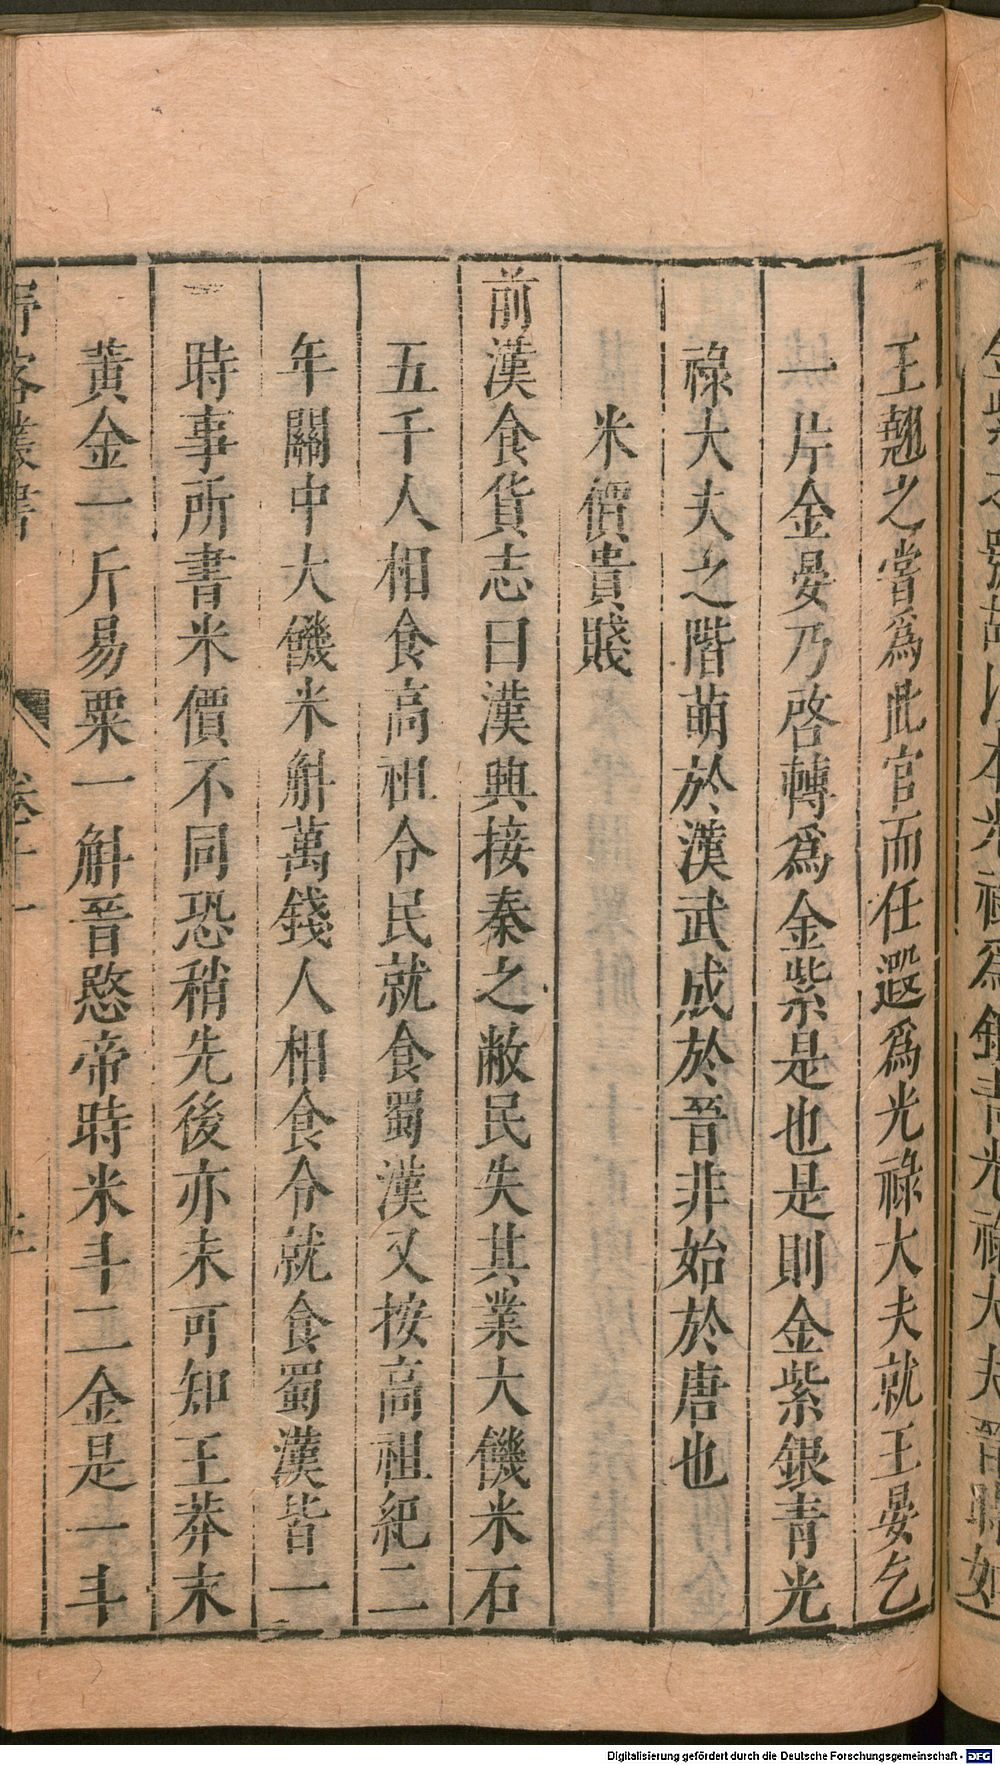 王翹之嘗爲此官而任遐爲光祿大夫就王晏乞
一片金晏乃啓轉爲金紫是也是則金紫銀青光
祿大夫之階萌於漢武成於晉非始於唐也
米價貴賤
前漢食貨志曰漢興接秦之敝民失其業大饑米石
五千人相食高祖令民就食蜀漢又按高祖紀二
年關中大饑米斛萬錢人相食令就食蜀漢皆一
時事所書米價不同恐稍先後亦未可知王莽末
黃金一斤易粟一斛晉愍帝時米斗二金是一斗
客叢書 卷十一
Digitalisierung gefördert durch die Deutsche Forschungsgemeinschaft - DFG